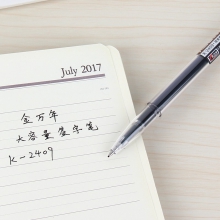 July 2017
金万年
大容量签字笔
K-2409